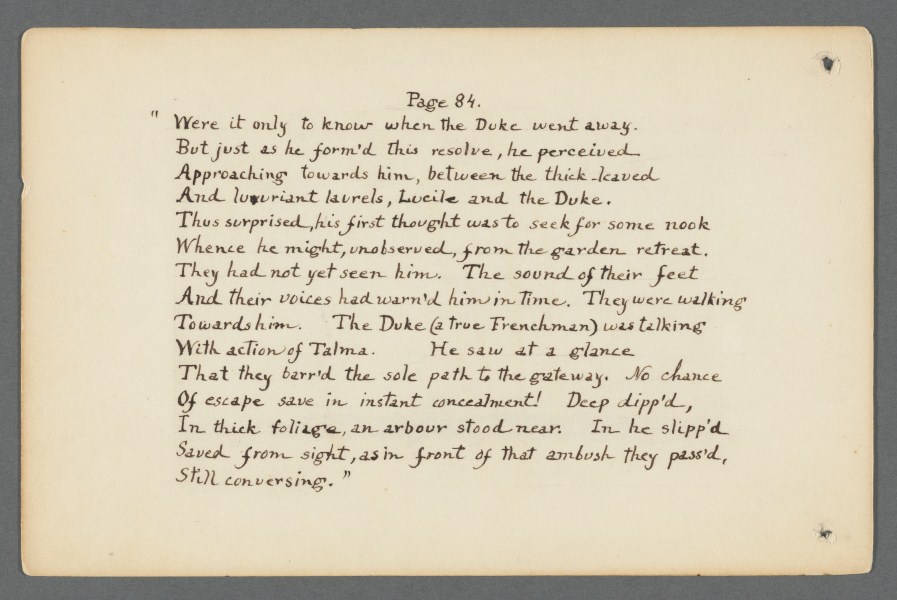 Page 84.
" Were it only to know when the Duke went away.
But just as he form'd this resolve, he perceived
Approaching towards him, between the thick-leaved
And luxuriant laurels, Lucile and the Duke.
Thus surprised, his first thought was to seek for some nook
Whence he might, unobserved, from the garden retreat.
They had not yet seen him. The sound of their feet
And their voices had warn'd him in time. They were walking
Towards him. The Duke (a true Frenchman) was talking
With action of Talma. He saw at a glance
That they barr'd the sole path to the gateway. No chance
Of escape save in instant concealment! Deep dipp'd,
In thick foliage, an arbour stood near. In he slipp'd
Saved from sight, as in front of that ambush they pass'd,
Still conversing. "